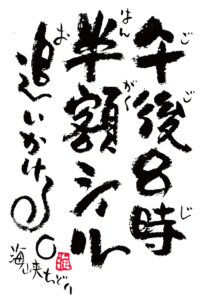 午後8時
ごご じ
半額シール
はんがく
追いかける。
お
海峡ちどり
海